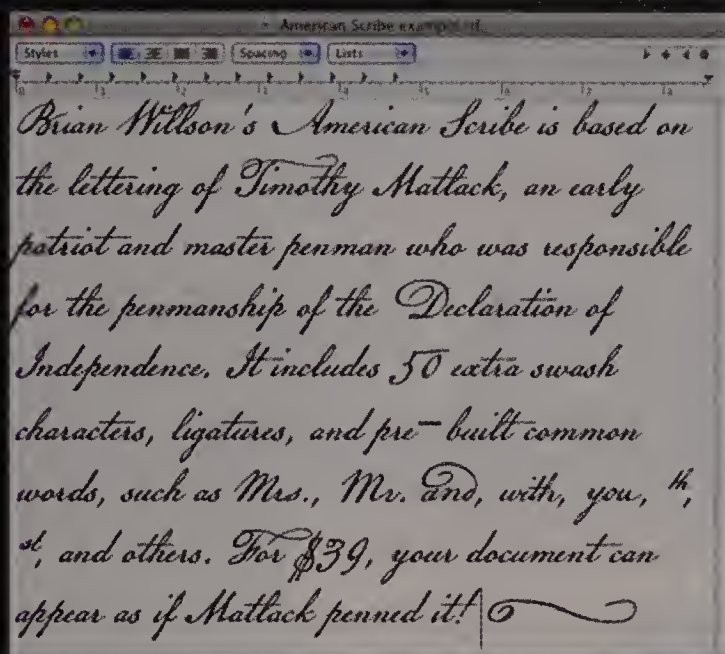 American Scribe example.rtf
Styles Spacing Lists
0 1 2 3 4 5 6 7 8
Brian Willson's American Scribe is based on
the lettering of Timothy Matlack, an early
patriot and master penman who was responsible
for the penmanship of the Declaration of
Independence. It includes 50 extra swash
characters, ligatures, and pre-built common
words, such as Mrs., Mr. and, with, you, th,
st, and others. For $39, your document can
appear as if Matlack penned it!